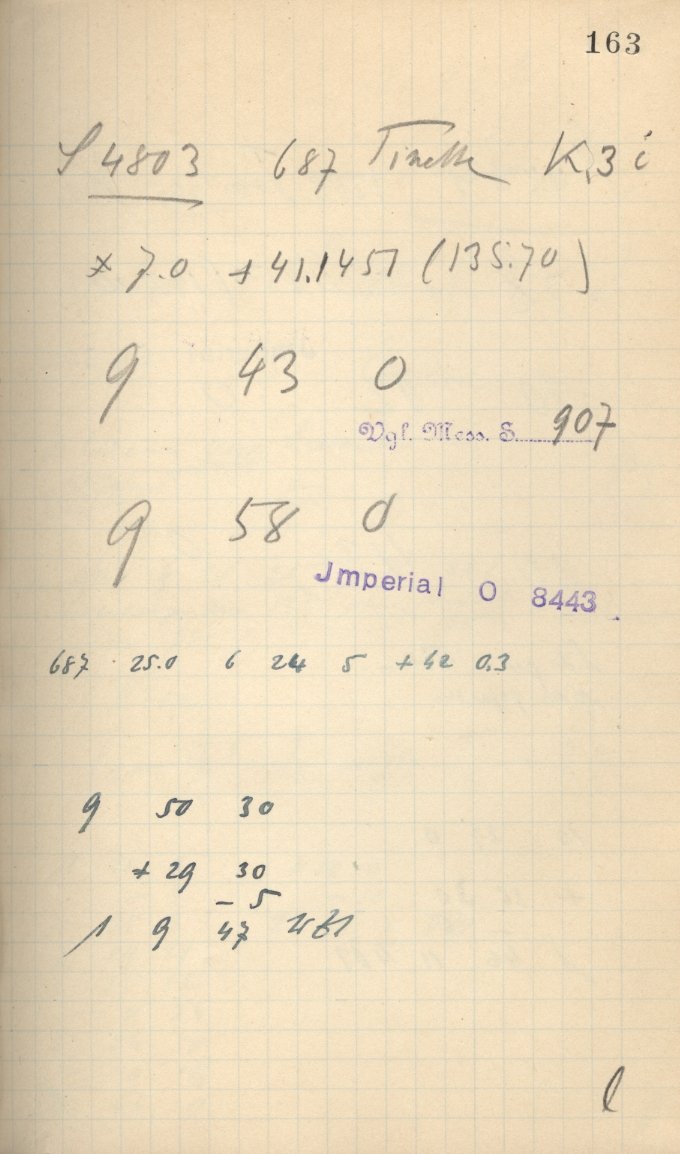 163
S 4803 687 Tinette K,3 i
* 7.0 + 41.1457 (135.70)
9 43 0
Vgl. Mess. S. 907
9 58 0
Jmperial O 8443.
687 25.0 6 24 5 + 42 0.3
9 50 30
+ 29 30
- 5
1 9 47
l